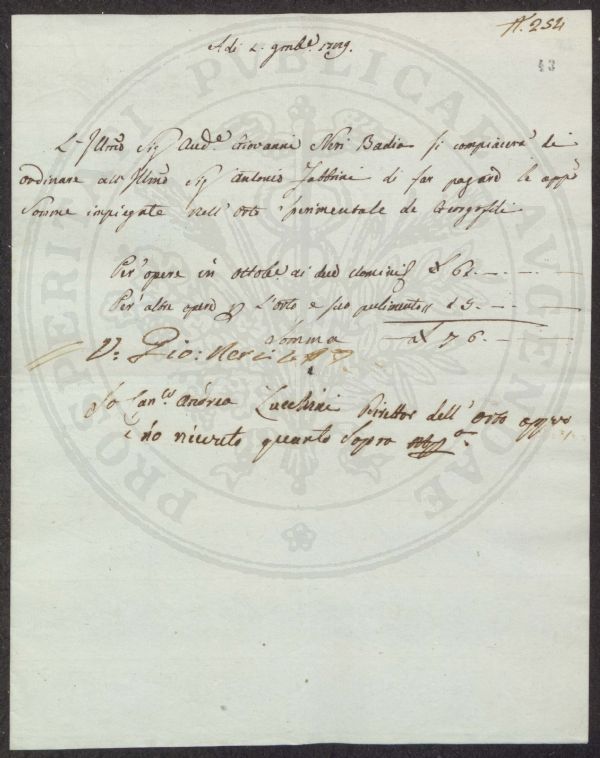 N. 254
43
Adi 2. 9mbre 1789.
L'Illmo Sig Aud.e Giovanni Neri Badia si compiacerà di
ordinare all'Illmo Sig Antonio Fabbrini di far pagare le appo
Somme impiegate nell'Orto Sperimentale de Georgofili
Per opere in Ottobe. di due Uomini £ 61. — . —
Per altre opere p L'Orto e suo pulimento £ 15. — . —
Somma £ 76. — . —
V: Gio: Neri
Io Can.co Andrea Zucchini Direttor dell'Orto appvo
E ho ricevto quanto Sopra
PROSPERITATI PUBLICAE AUGENDAE